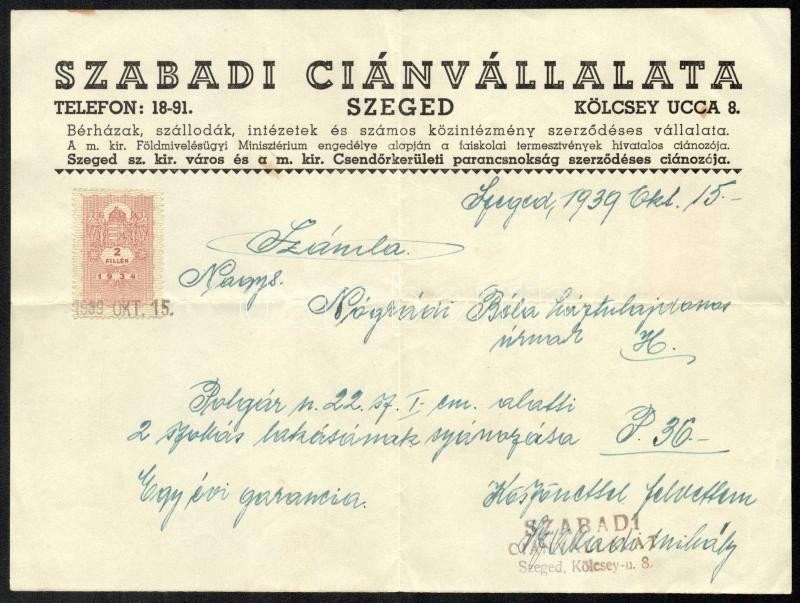 SZABADI CIÁNVÁLLALATA
TELEFON: 18-91. SZEGED KÖLCSEY UCCA 8.
Bérházak, szállodák, intézetek és számos közintézmény szerződéses vállalata.
A m. kir. Földmivelésügyi Minisztérium engedélye alapján a faiskolai termesztvények hivatalos ciánozója.
Szeged sz. kir. város és a m. kir. Csendőrkerületi parancsnokság szerződéses ciánozója.
Szeged, 1939 Okt. 15-
2
FILLÉR
1934
1939 OKT. 15.
Számla.
Nagys.
Nógrádi Béla háztulajdonos
úrnak H.
Polgár u. 22. sz. I. em. alatti
2 szobás lakásának cyánozása P. 36.-
Egy évi garancia.
Köszönettel felvettem
Szabadi Mihály
SZABADI
CIÁNVÁLLALAT
Szeged, Kölcsey-u. 8.